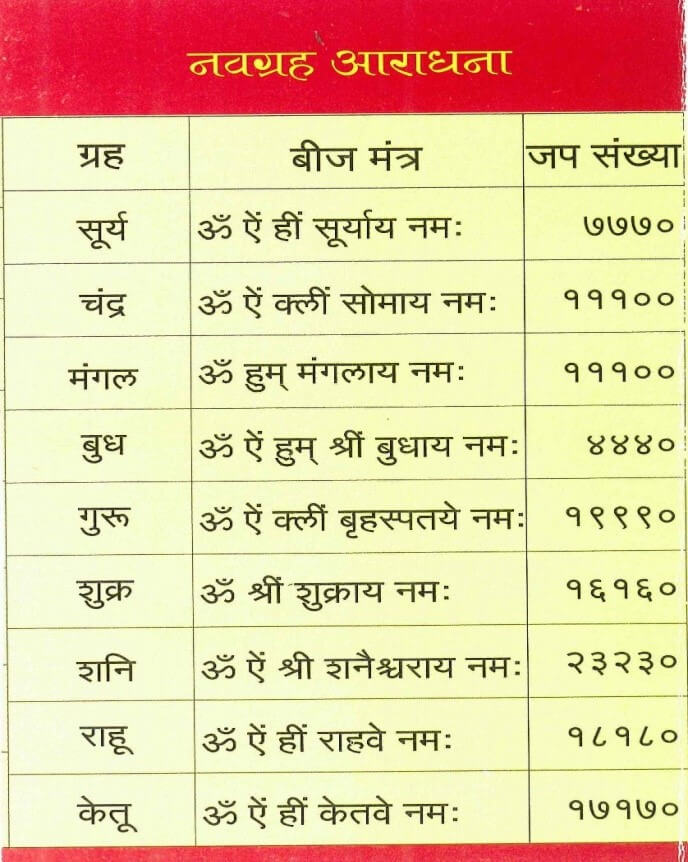 नवग्रह आराधना
ग्रह बीज मंत्र जप संख्या
सूर्य ॐ ऐं हीं सूर्याय नमः ७७७०
चंद्र ॐ ऐं क्लीं सोमाय नमः १११००
मंगल ॐ हुम् मंगलाय नमः १११००
बुध ॐ ऐं हुम् श्रीं बुधाय नमः ४४४०
गुरू ॐ ऐं क्लीं बृहस्पतये नमः १९९९०
शुक्र ॐ श्रीं शुक्राय नमः १६१६०
शनि ॐ ऐं श्री शनैश्चराय नमः २३२३०
राहू ॐ ऐं हीं राहवे नमः १८१८०
केतू ॐ ऐं हीं केतवे नमः १७१७०